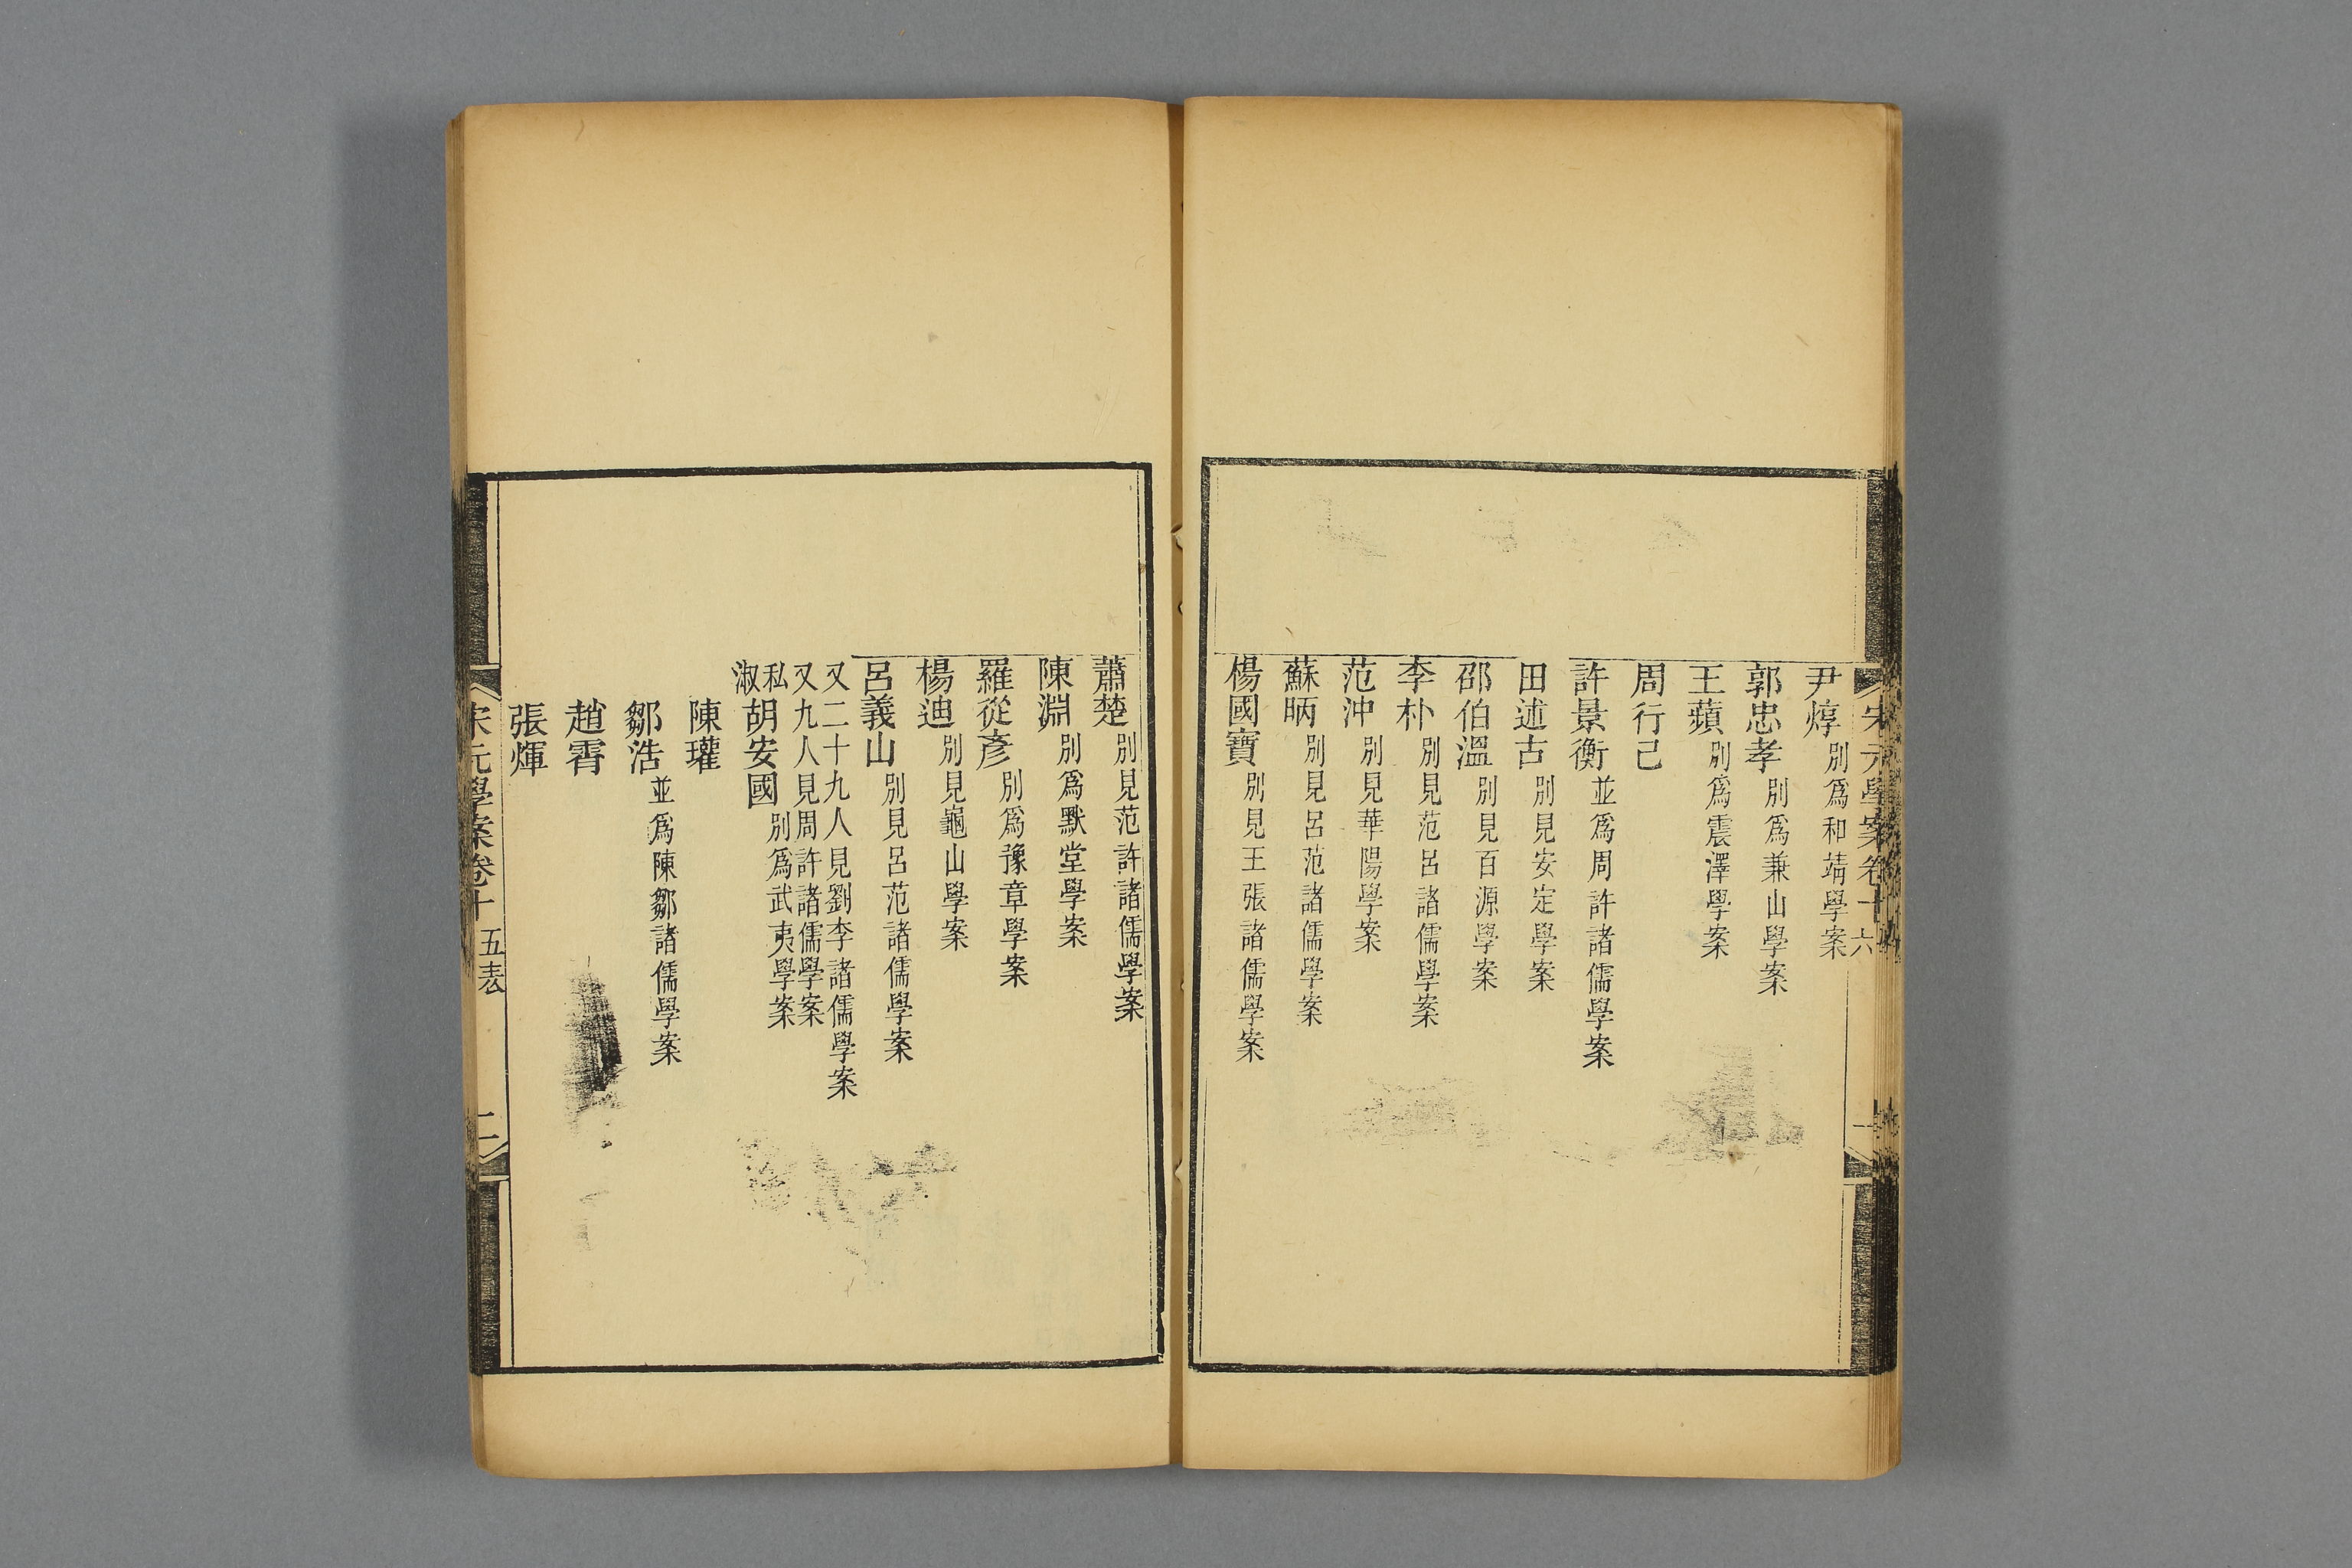 宋元學案卷十六
尹焞 別爲和靖學案
郭忠孝 別爲兼山學案
王蘋 別爲震澤學案
周行己
許景衡 並爲周許諸儒學案
田述古 別見安定學案
邵伯溫 別見百源學案
李朴 別見范呂諸儒學案
范沖 別見華陽學案
蘇昞 別見呂范諸儒學案
楊國寶 別見王張諸儒學案
蕭楚 別見范許諸儒學案
陳淵 別爲默堂學案
羅從彥 別爲豫章學案
楊迪 別見龜山學案
呂義山 別見呂范諸儒學案
又二十九人見劉李諸儒學案
又九人見周許諸儒學案
私淑 胡安國 別爲武夷學案
陳瓘
鄒浩 並爲陳鄒諸儒學案
趙霄
張煇
宋元學案卷十五表